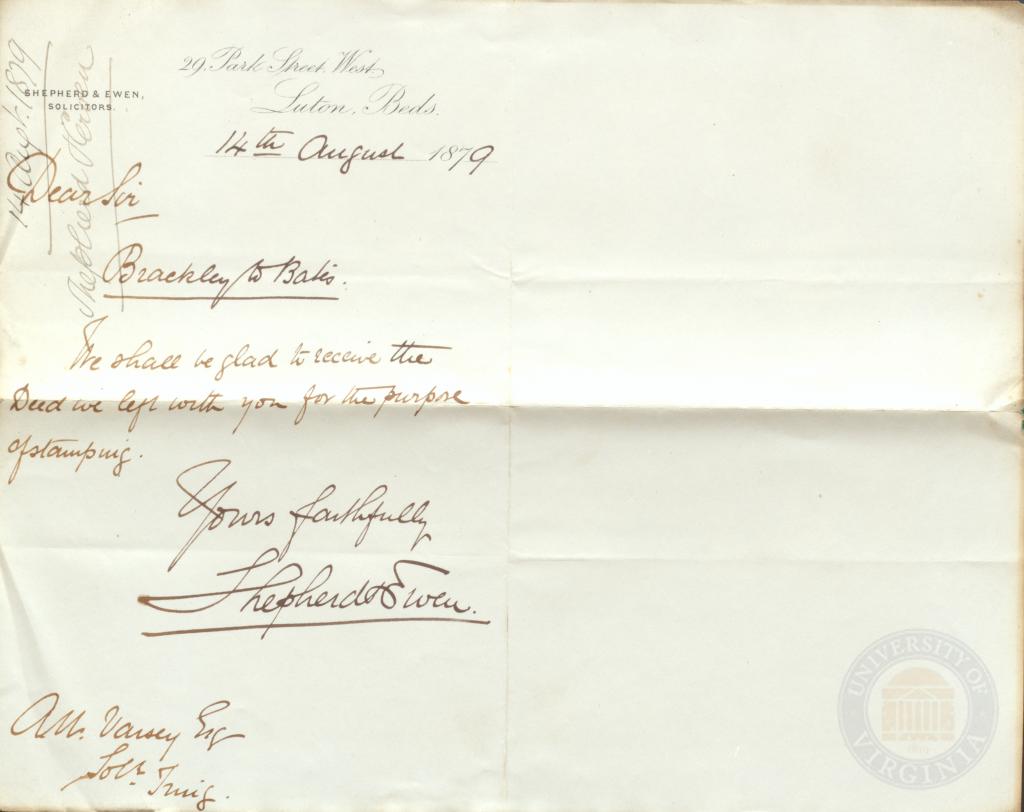 14 Augt. 1879
Shepherd & Ewen
SHEPHERD & EWEN,
SOLICITORS.
29, Park Street West,
Luton, Beds.
14th August 1879
Dear Sir
Brackley to Bates.
We shall be glad to receive the
Deed we left with you for the purpose
of stamping.
Yours faithfully
Shepherd & Ewen.
Vaisey Esq
Solr. Tring.
UNIVERSITY OF VIRGINIA
1819